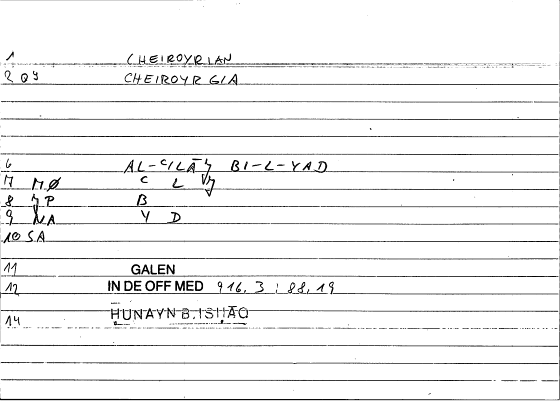 1 CHEIROYRIAN
2 QY CHEIROYRGIA
6 AL-CILAǦ BI-L-YAD
7 MØ C L Ǧ
8 P B
9 NA Y D
10 SA
11 GALEN
12 IN DE OFF MED 916.3 : 88,19
14 ḤUNAYN B. ISḤĀQ